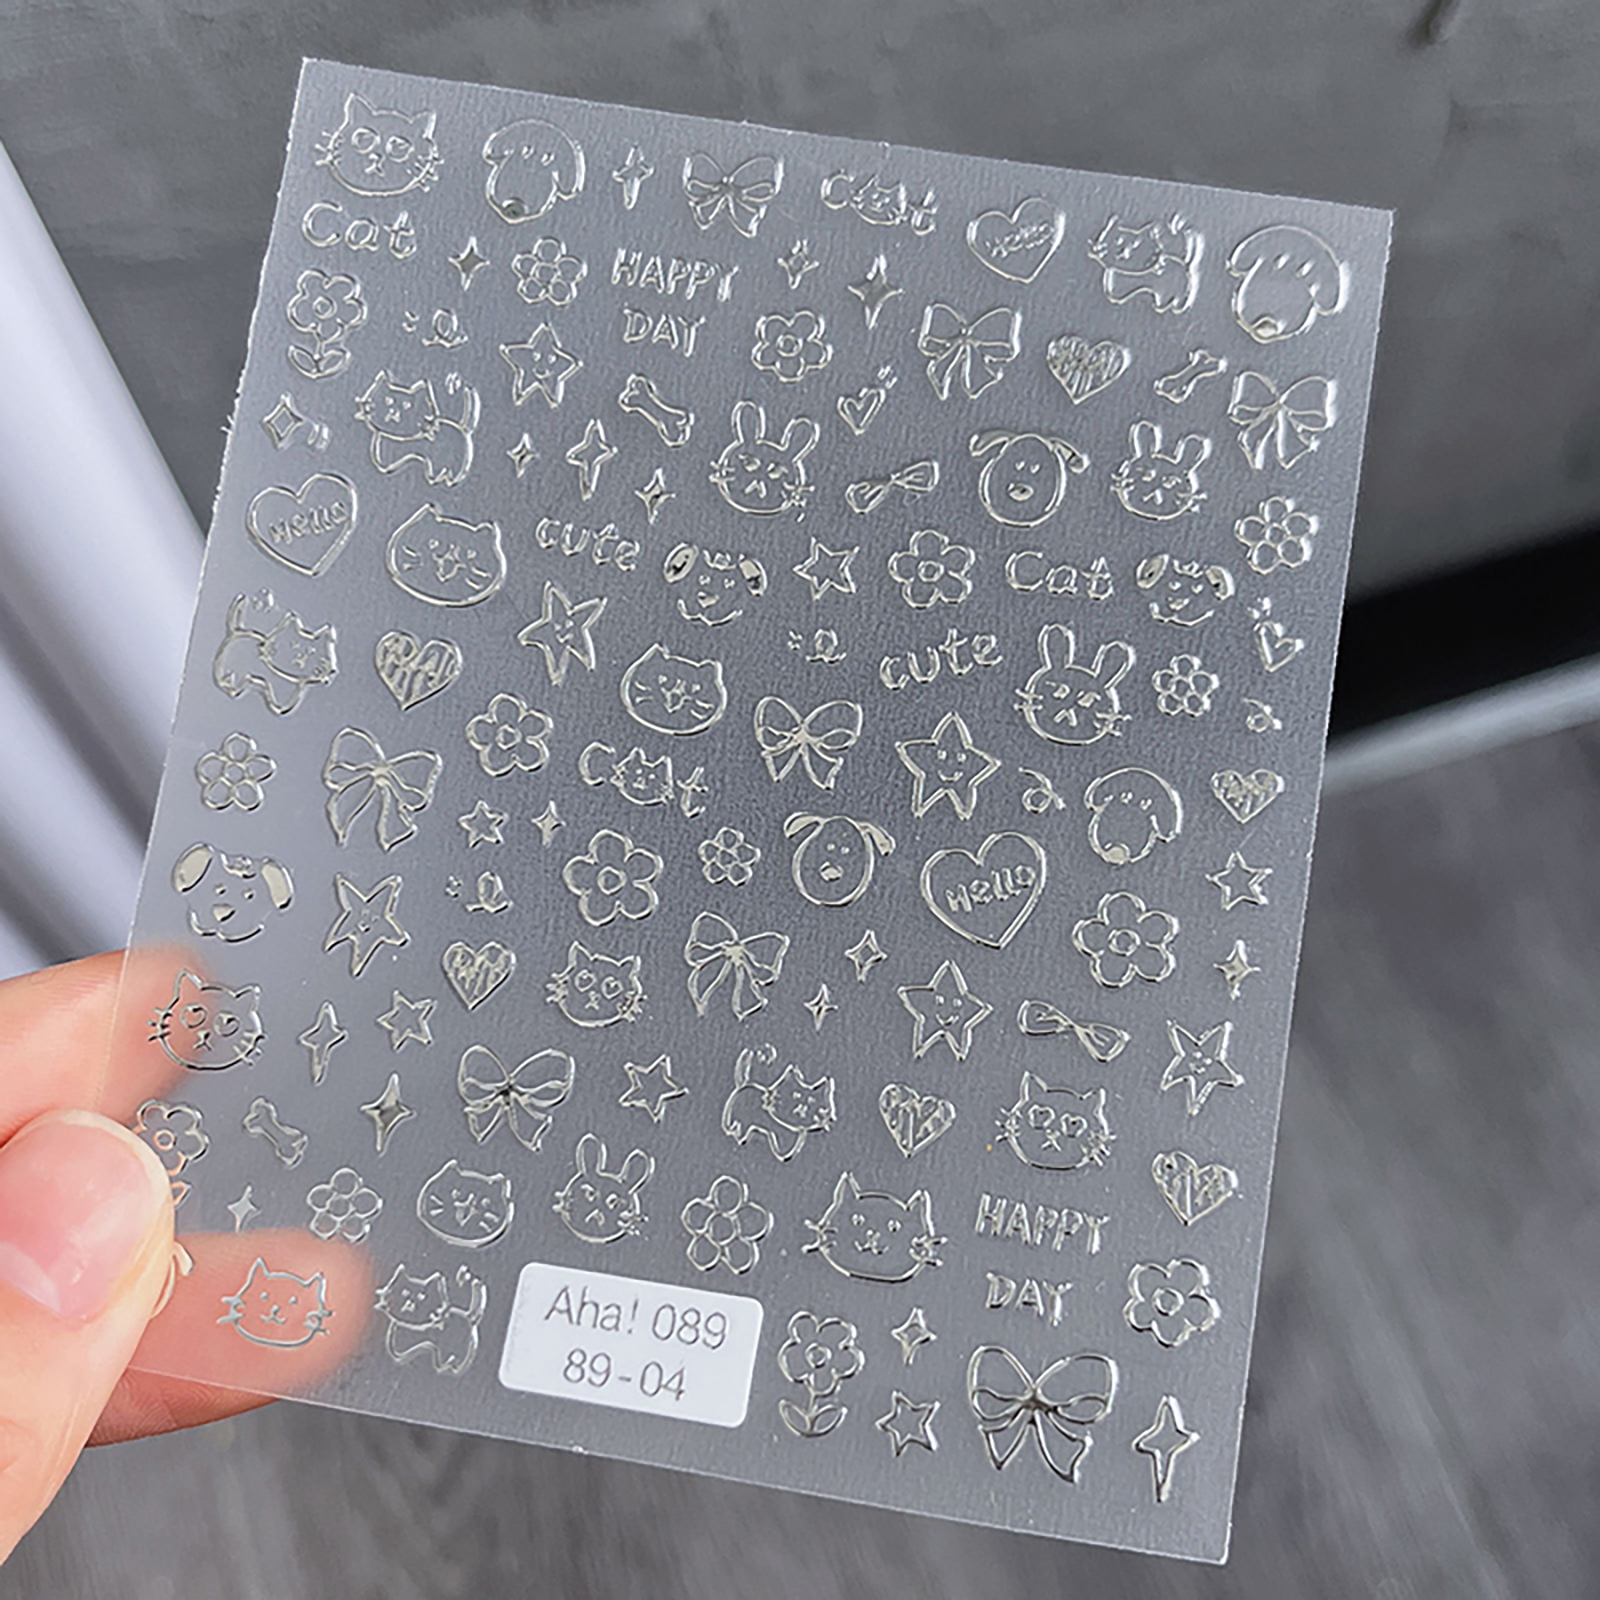 Cat
Cat
Hello
HAPPY
DAY
Hello
cute
Cat
cute
Cat
Hello
HAPPY
DAY
Aha! 089
89-04